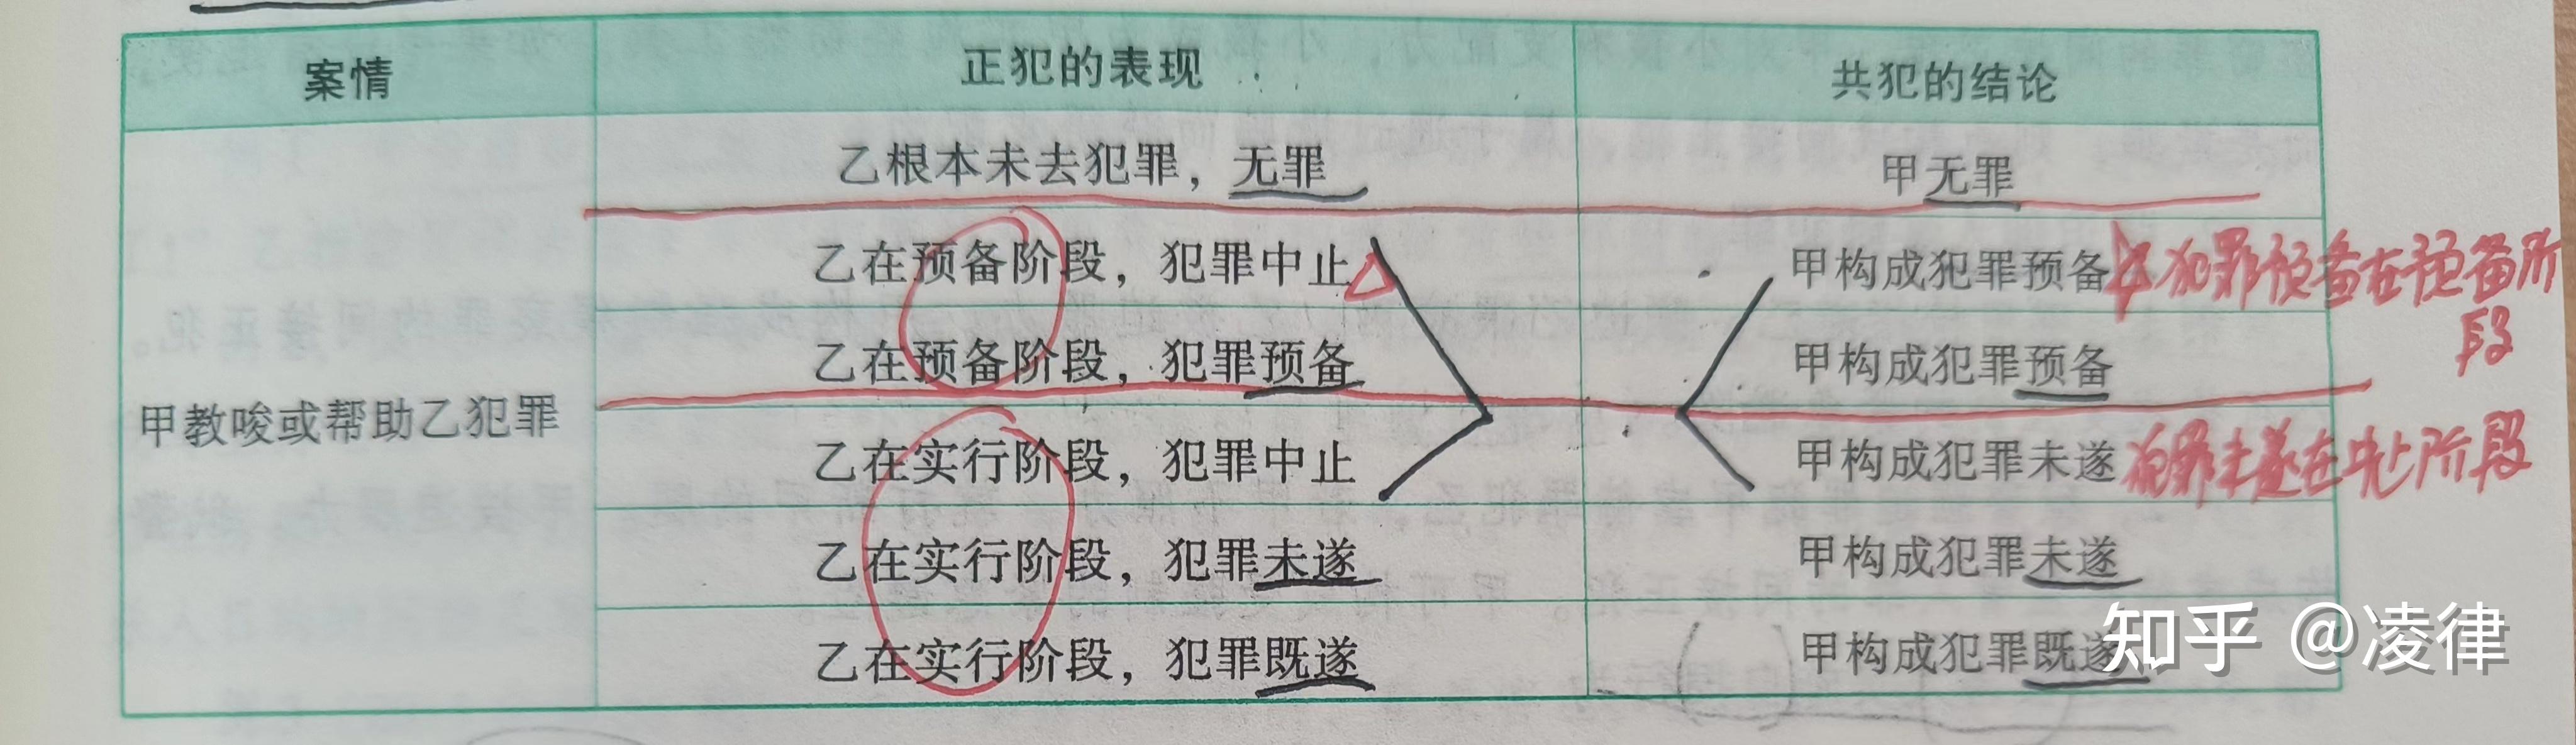 案情 正犯的表现 共犯的结论
乙根本未去犯罪，无罪 甲无罪
乙在预备阶段，犯罪中止 甲构成犯罪预备 犯罪预备在预备阶
段
乙在预备阶段，犯罪预备 甲构成犯罪预备
甲教唆或帮助乙犯罪
乙在实行阶段，犯罪中止 甲构成犯罪未遂 犯罪未遂在中止阶段
乙在实行阶段，犯罪未遂 甲构成犯罪未遂
乙在实行阶段，犯罪既遂 甲构成犯罪既遂
知乎 @凌律